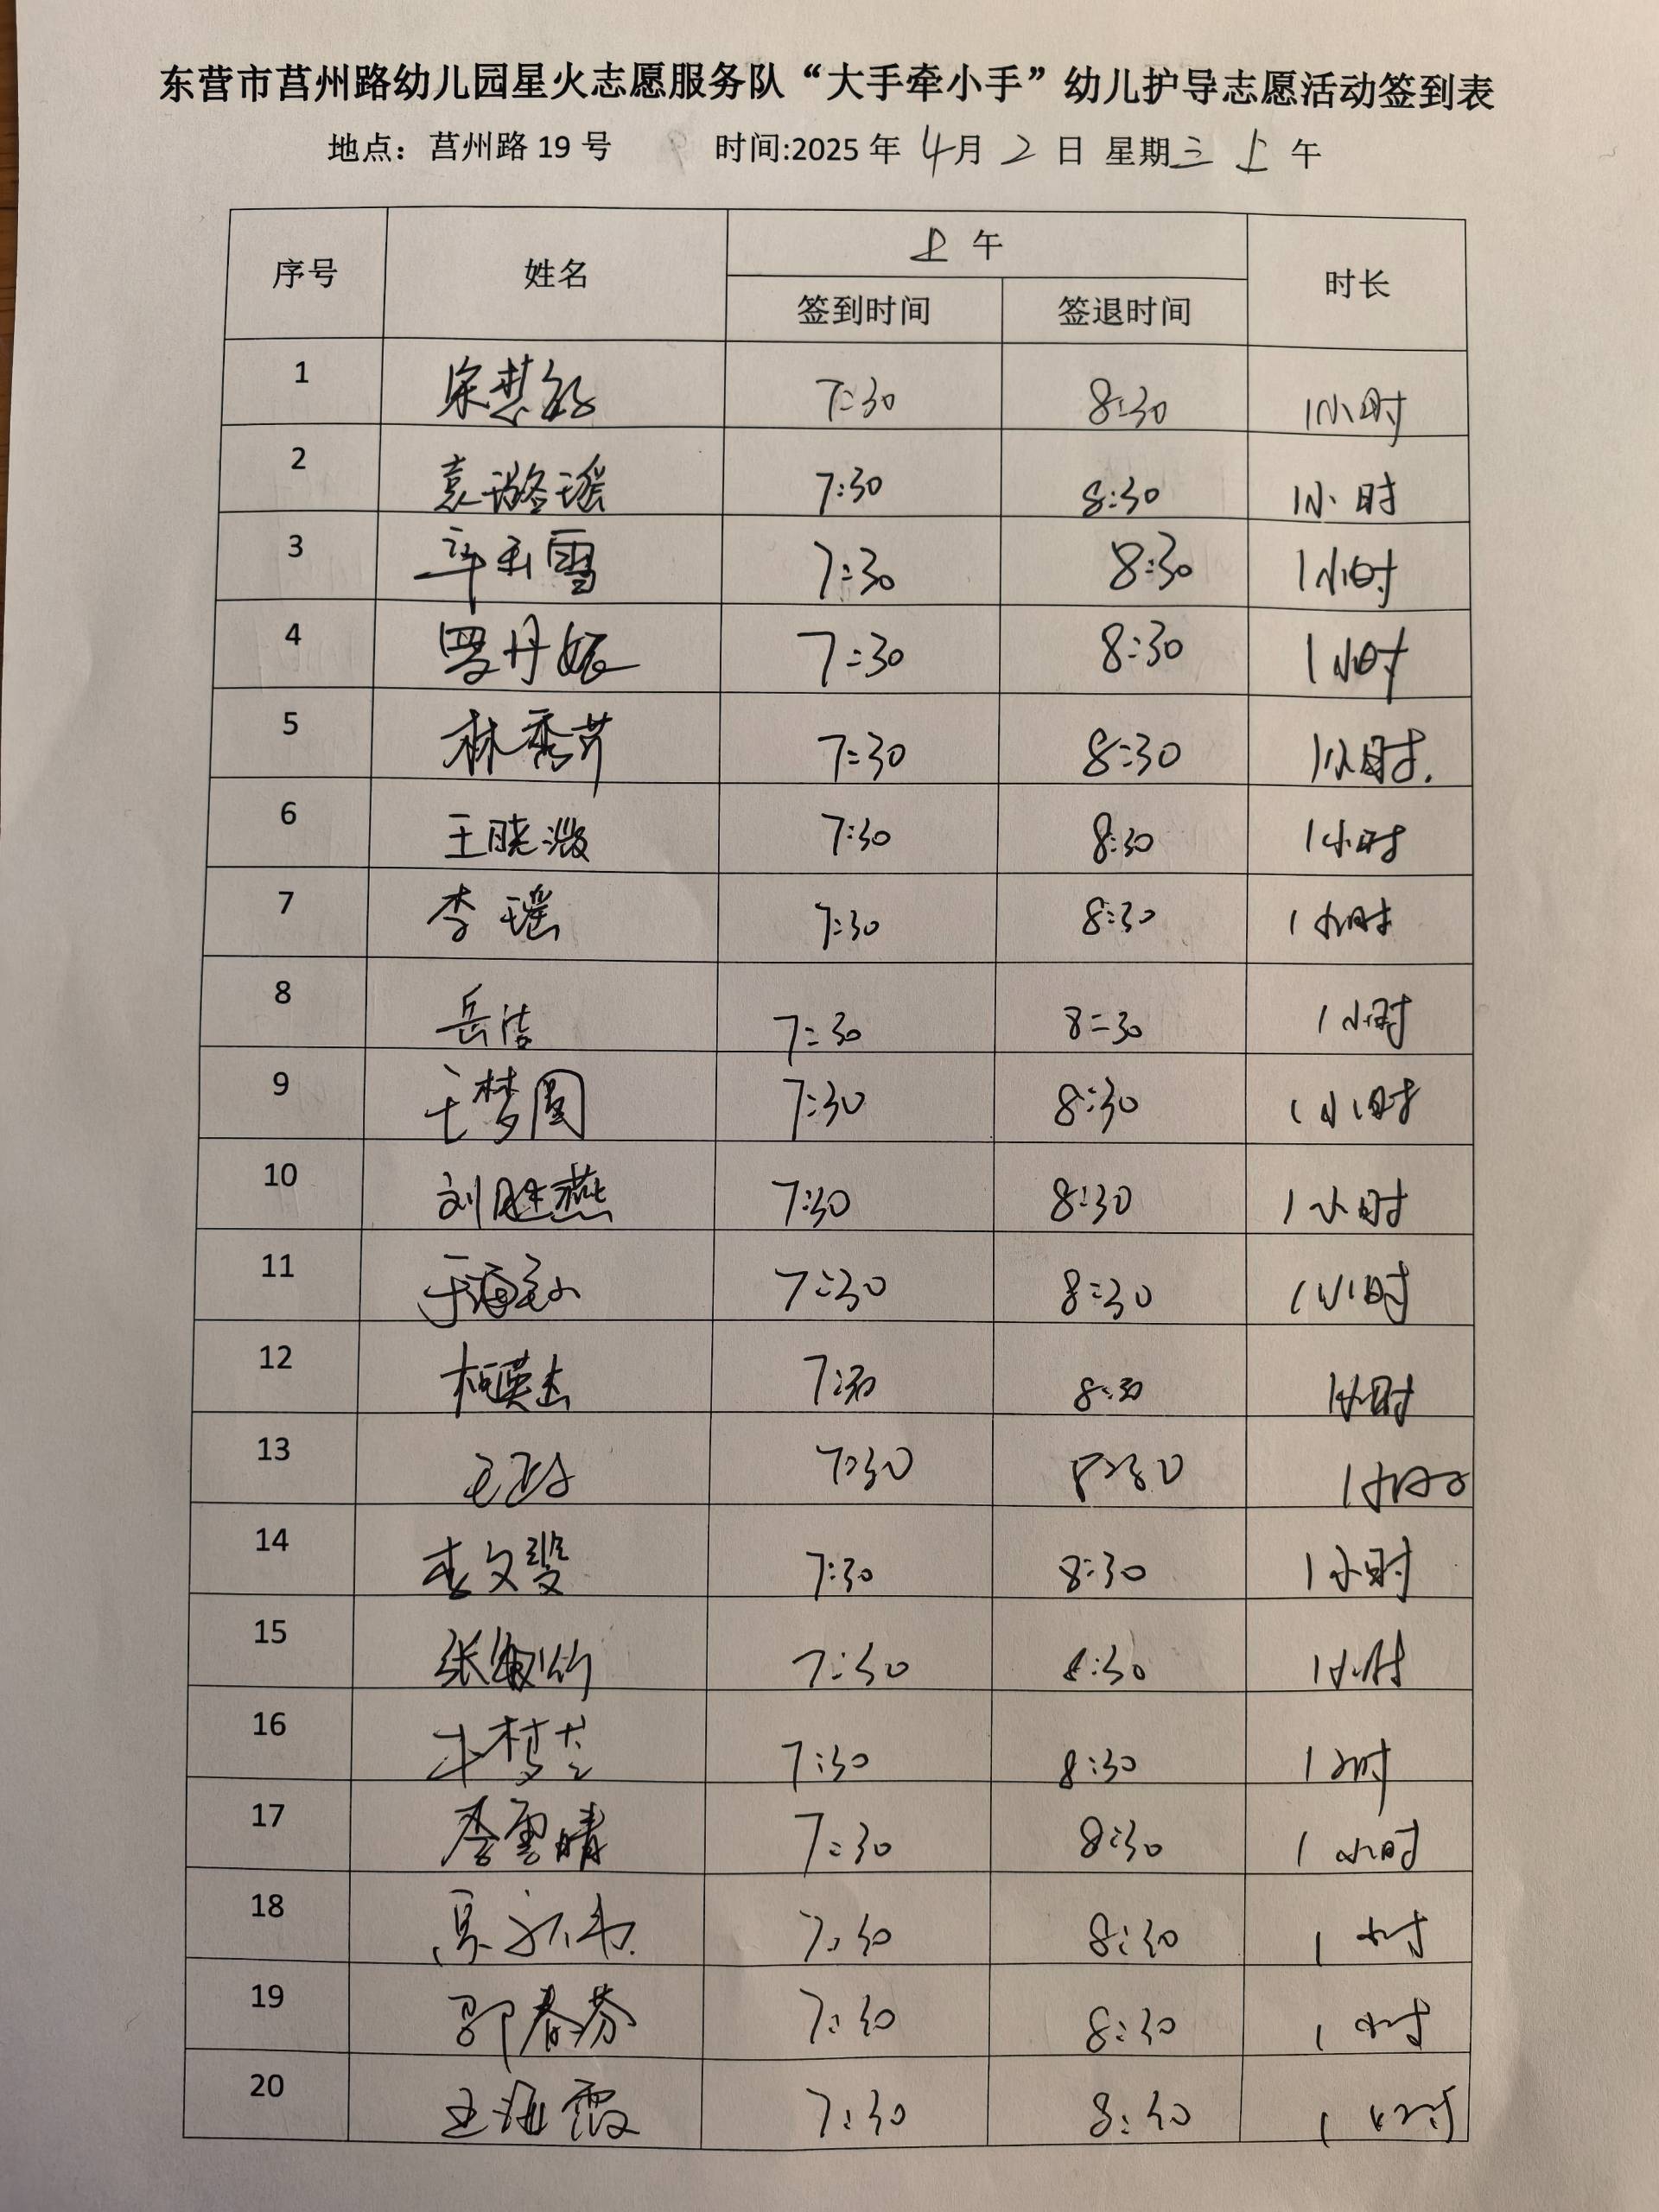 东营市莒州路幼儿园星火志愿服务队“大手牵小手”幼儿护导志愿活动签到表
地点：莒州路 19 号 时间:2025 年 4月 2 日 星期三 上 午
序号 姓名 上 午 时长
签到时间 签退时间
1 7:30 8:30 1小时
2 袁璐瑶 7:30 8:30 1小时
3 辛玉雪 7:30 8:30 1小时
4 罗丹妮 7:30 8:30 1小时
5 林秀芹 7:30 8:30 1小时.
6 王晓溦 7:30 8:30 1小时
7 李瑶 7:30 8:30 1小时
8 岳洁 7:30 8:30 1小时
9 王梦圆 7:30 8:30 1小时
10 刘胜燕 7:30 8:30 1小时
11 7:30 8:30 1小时
12 柯英杰 7:30 8:30 1小时
13 7:30 8:30 1小时
14 李文斐 7:30 8:30 1小时
15 7:30 8:30 1小时
16 7:30 8:30 1小时
17 李雪晴 7:30 8:30 1小时
18 7:30 8:30 1小时
19 郭春芬 7:30 8:30 1小时
20 王海霞 7:30 8:30 1小时